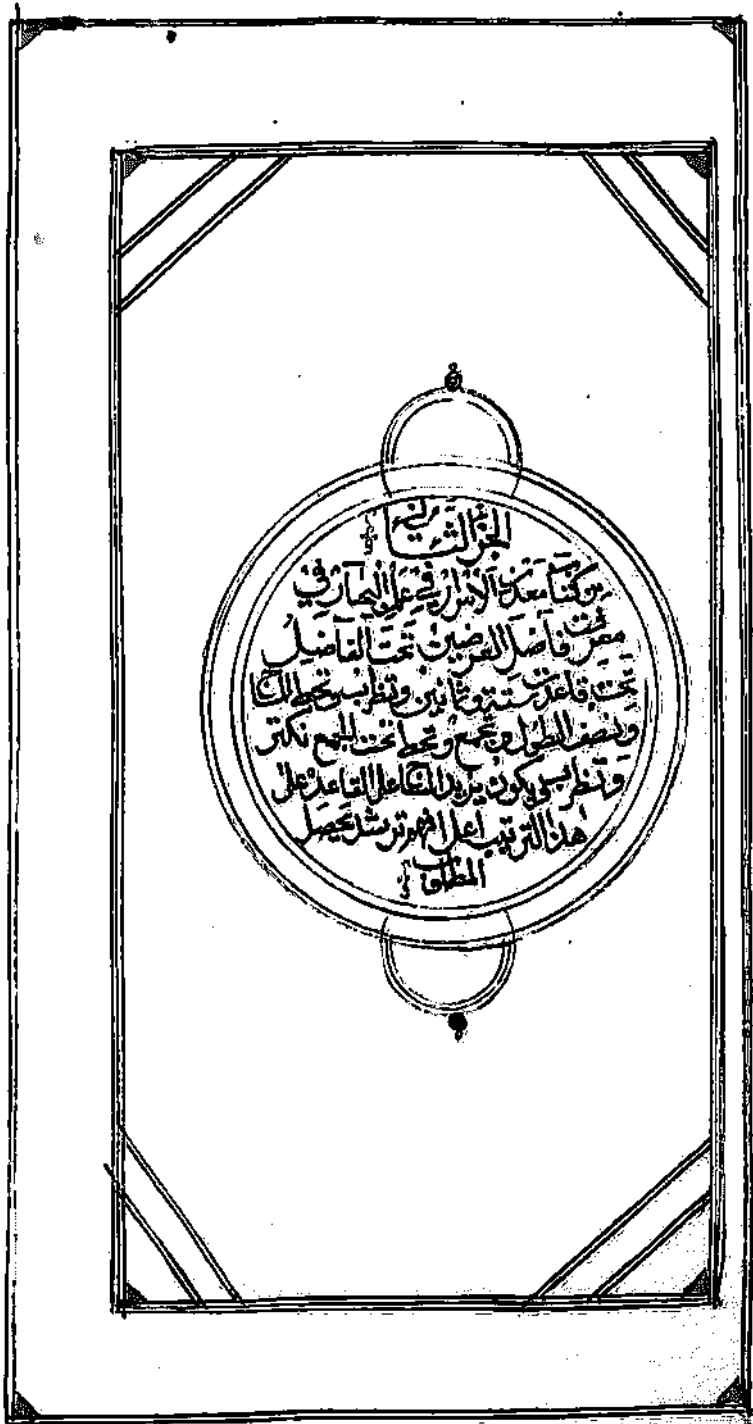 الجزء الثاني
من كتاب معدن الاسرار في علم البحار في
معرفت فاضل العرضين تحت الفاضل
تحت قاعدت ستة وثمانين وتضرابه وتحط المنتا
ونصف الطول من تجمع وتحط تحت الجمع نكتر
وتنظر بيكون يزيد المنتا على القاعد على
هذا الترتيب اعلا افهم ترشد يحصل
المطلوب